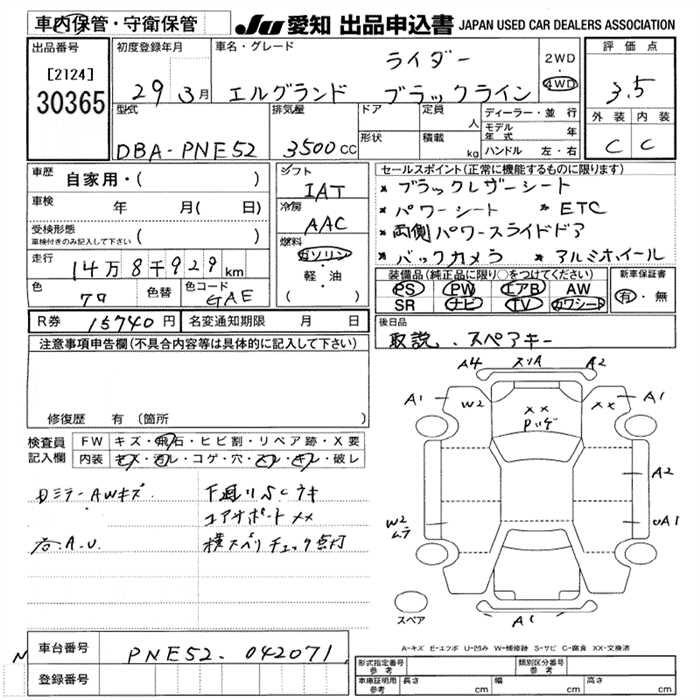 車内保管・守衛保管
JU 愛知 出品申込書 JAPAN USED CAR DEALERS ASSOCIATION
出品番号
[2124]
30365
初度登録年月
29 3月
車名・グレード
ライダー
エルグランド ブラックライン
2WD
4WD
評価点
3.5
外装 内装
C C
型式
DBA-PNE52
排気量
3500cc
ドア
形状
定員
人
積載
kg
ディーラー・並行
モデル年式 年
ハンドル 左・右
車歴 自家用・( )
車検 年 月( 日)
受検形態
車検付きのみ記入して下さい ( )
走行 14万8千929km
色 クロ
色替
色コード GAE
シフト
IAT
冷房
AAC
燃料
ガソリン
軽・油
( )
セールスポイント(正常に機能するものに限ります)
* ブラックレザーシート
* パワーシート * ETC
* 両側パワースライドドア
* バックカメラ * アルミホイール
装備品(純正品に限り○をつけてください)
PS PW エアB AW
SR ナビ TV カワシート
新車保証書
有・無
R券 15740円
名変通知期限 月 日
後日品
取説、スペアキー
注意事項申告欄(不具合内容等は具体的に記入して下さい)
修復歴 有(箇所
検査員記入欄
FW キズ・飛石・ヒビ割・リペア跡・X要
内装 キズ・汚レ・コゲ・穴・スレ・キレ・破レ
日ミラーAWキズ
下廻りSCウキ
コアサポートXX
右A.U.
横スベリチェック点灯
A4 スリA A2
A1 W2 XX XX A1
Pハゲ
A2
W2
ムラ
UA1
A1
スペア
A-キズ E-エクボ U-凹み W-補修跡 S-サビ C-腐食 XX-交換済
車台番号 PNE52-042071
登録番号
N
形式指定番号
参考
類別区分番号
参考
車庫証明用
参考
長さ cm 幅 cm 高さ cm